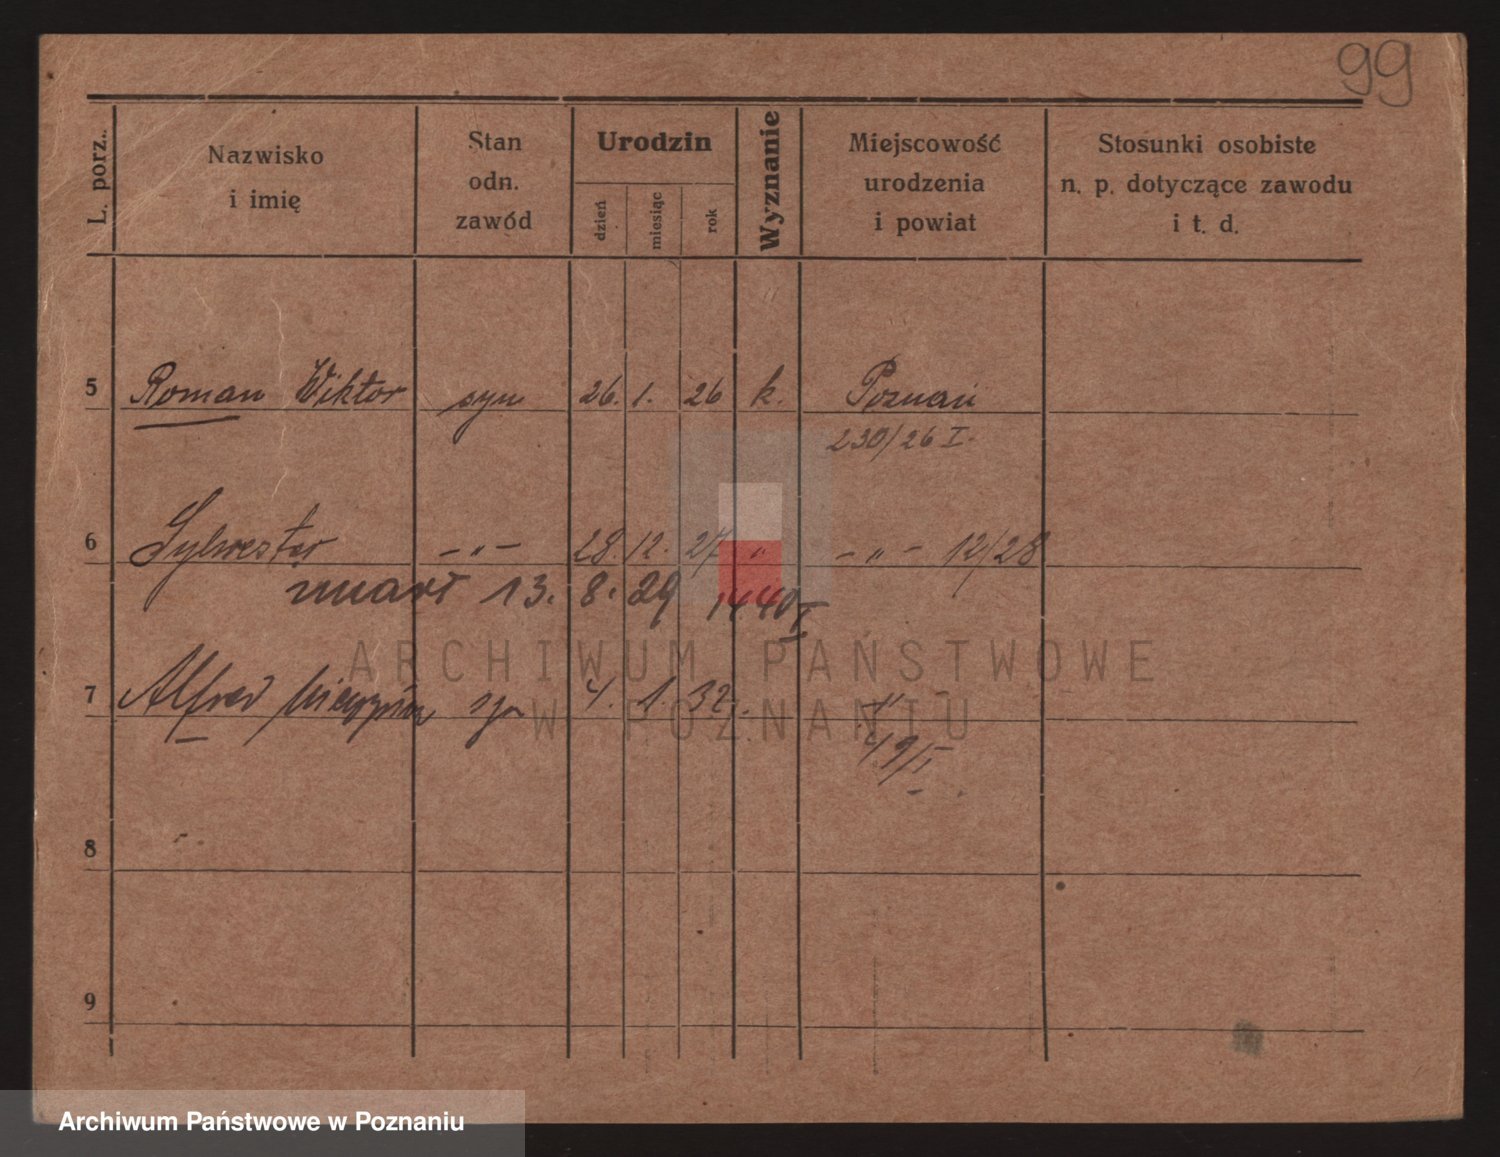 99
L. porz..
Nazwisko
i imię
Stan
odn.
zawód
Urodzin
dzień
miesiąc
rok
Wyznanie
Miejscowość
urodzenia
i powiat
Stosunki osobiste
n. p. dotyczące zawodu
i t. d.
5 Roman Wiktor syn 26. 1. 26 k. Poznań
230/26 I.
6 Sylwester -„- 28. 12. 27 „ -„- 12/28
zmarł 13. 8. 29 1440 I
7 Alfred syn 4. 1. 32. -„-
49/I
8
9
ARCHIWUM PAŃSTWOWE
W POZNANIU
Archiwum Państwowe w Poznaniu